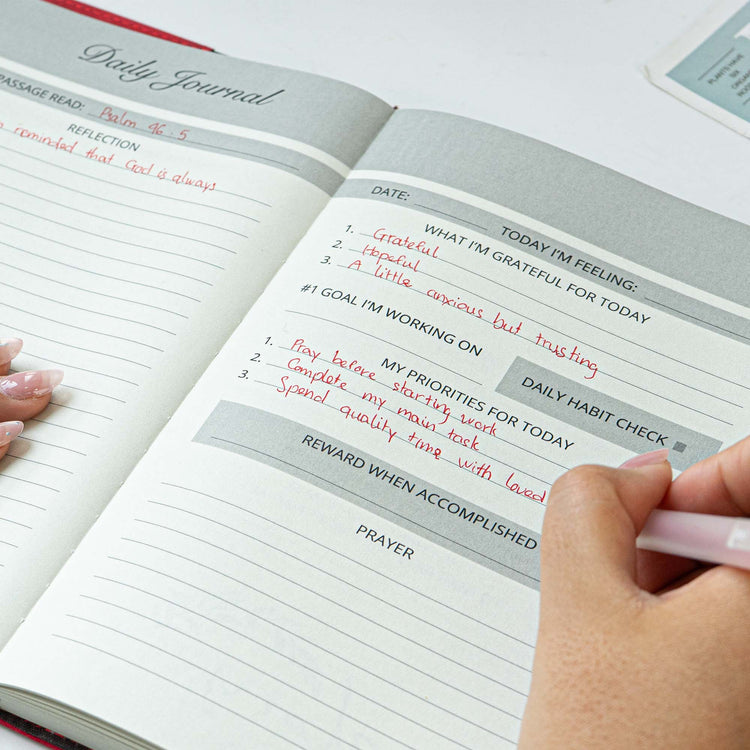 Daily Journal
PASSAGE READ: Psalm 96:5
REFLECTION
reminded that God is always
DATE:
TODAY I'M FEELING:
WHAT I'M GRATEFUL FOR TODAY
1. Grateful
2. Hopeful
3. A little anxious but trusting
#1 GOAL I'M WORKING ON
DAILY HABIT CHECK
MY PRIORITIES FOR TODAY
1. Pray before starting work
2. Complete my main task
3. Spend quality time with loved
REWARD WHEN ACCOMPLISHED
PRAYER
PLANTS HAVE